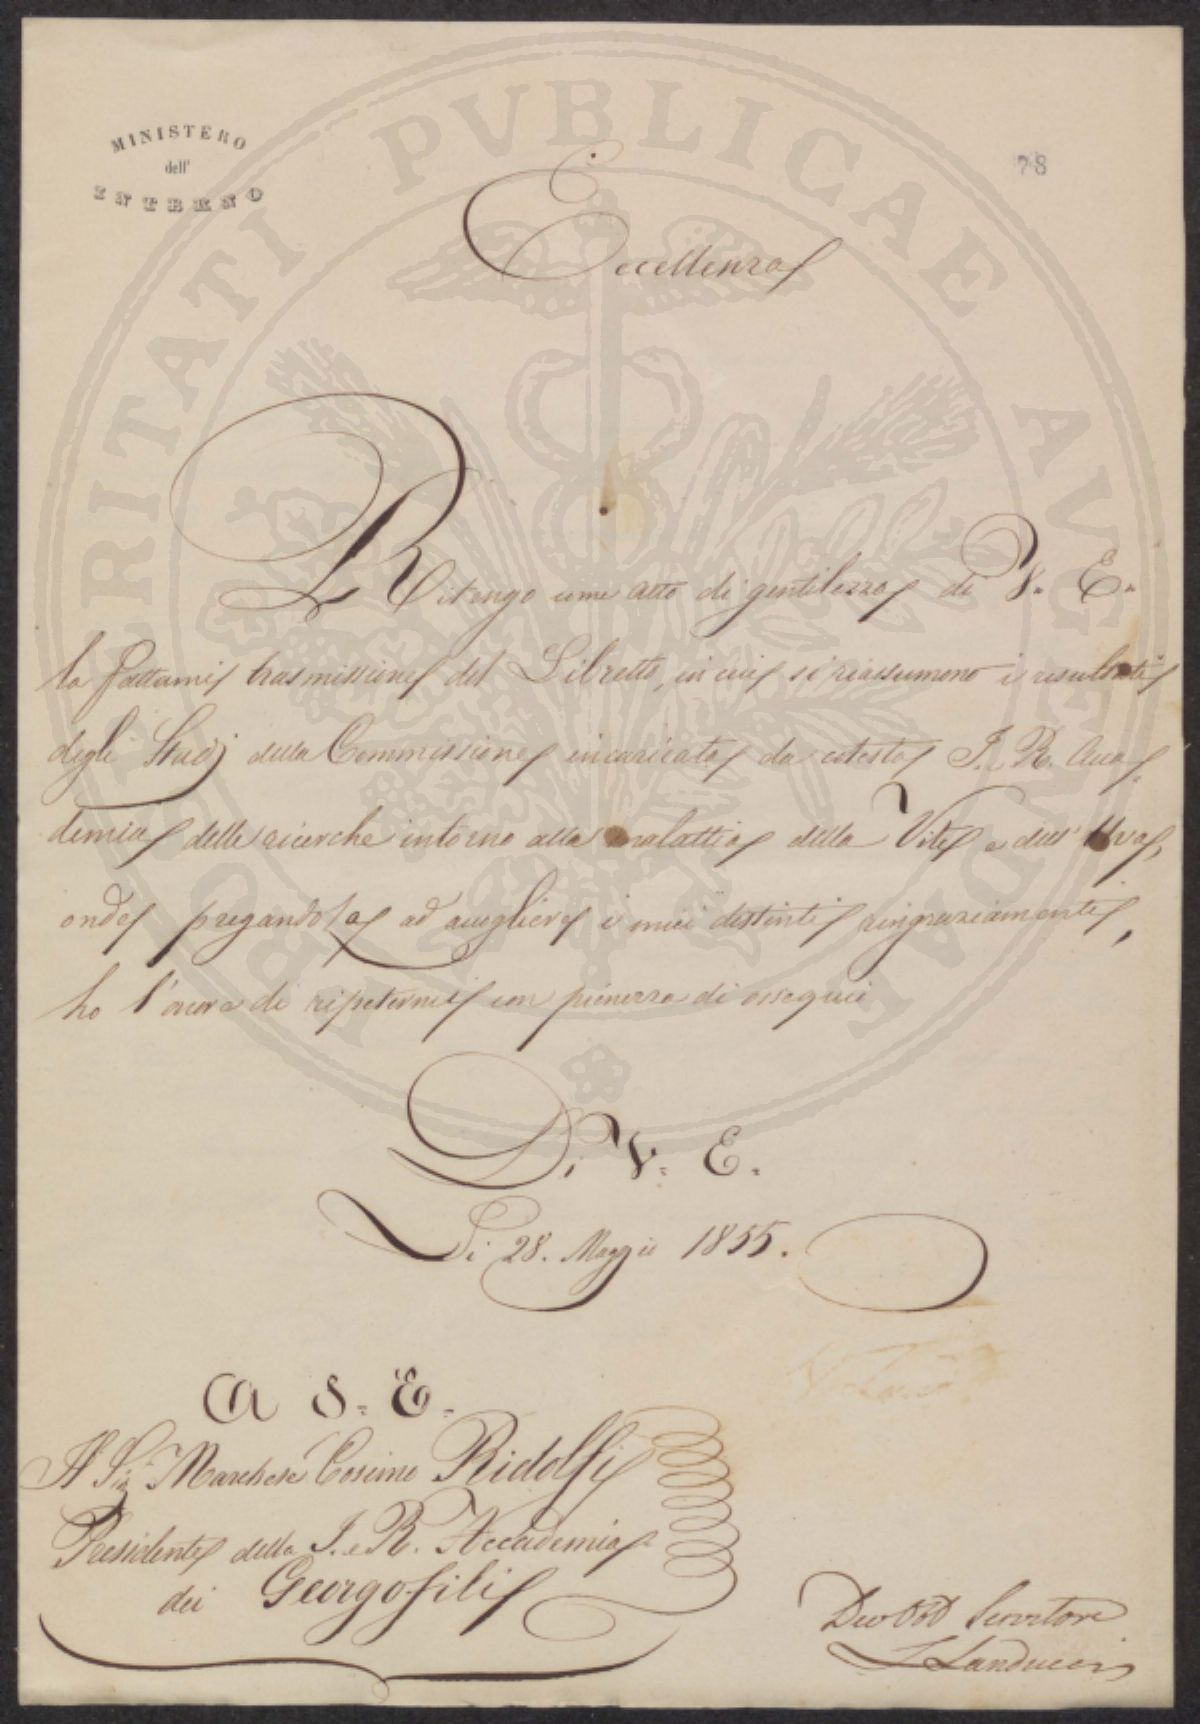 MINISTERO
dell'
INTERNO
78
PROSPERITATI PVBLICAE AVGENDAE
Eccellenza
Ritengo come atto di gentilezza di V. E.
la fattami trasmissione del Libretto, in cui si riassumono i resultati
degli Studj della Commissione incaricata da cotesta I. R. Acca=
demia delle ricerche intorno alla malattia della Vite e dell'Uva,
onde pregandola ad accogliere i miei distinti ringraziamenti,
ho l'onore di ripetermi con pienezza di ossequio
Di V. E.
Li 28. Maggio 1855.
A S. E.
Il Sig. Marchese Cosimo Ridolfi
Presidente della I. e R. Accademia
dei Georgofili
Dev Servitore
L Landucci